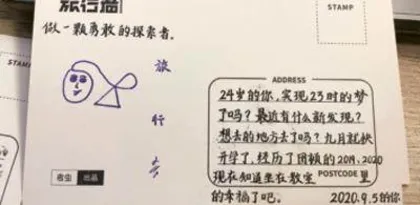 旅行猫
STAMP
做一颗勇敢的探索者。
旅
行
ADDRESS
24岁的你,实现23时的梦
了吗?最近有什么新发现?
想去的地方去了吗?九月就快
开学了,经历了困顿的2019,2020
现在知道坐在教室 POSTCODE 里
的幸福了吧。 2020.9.5的你
出品
STAMP